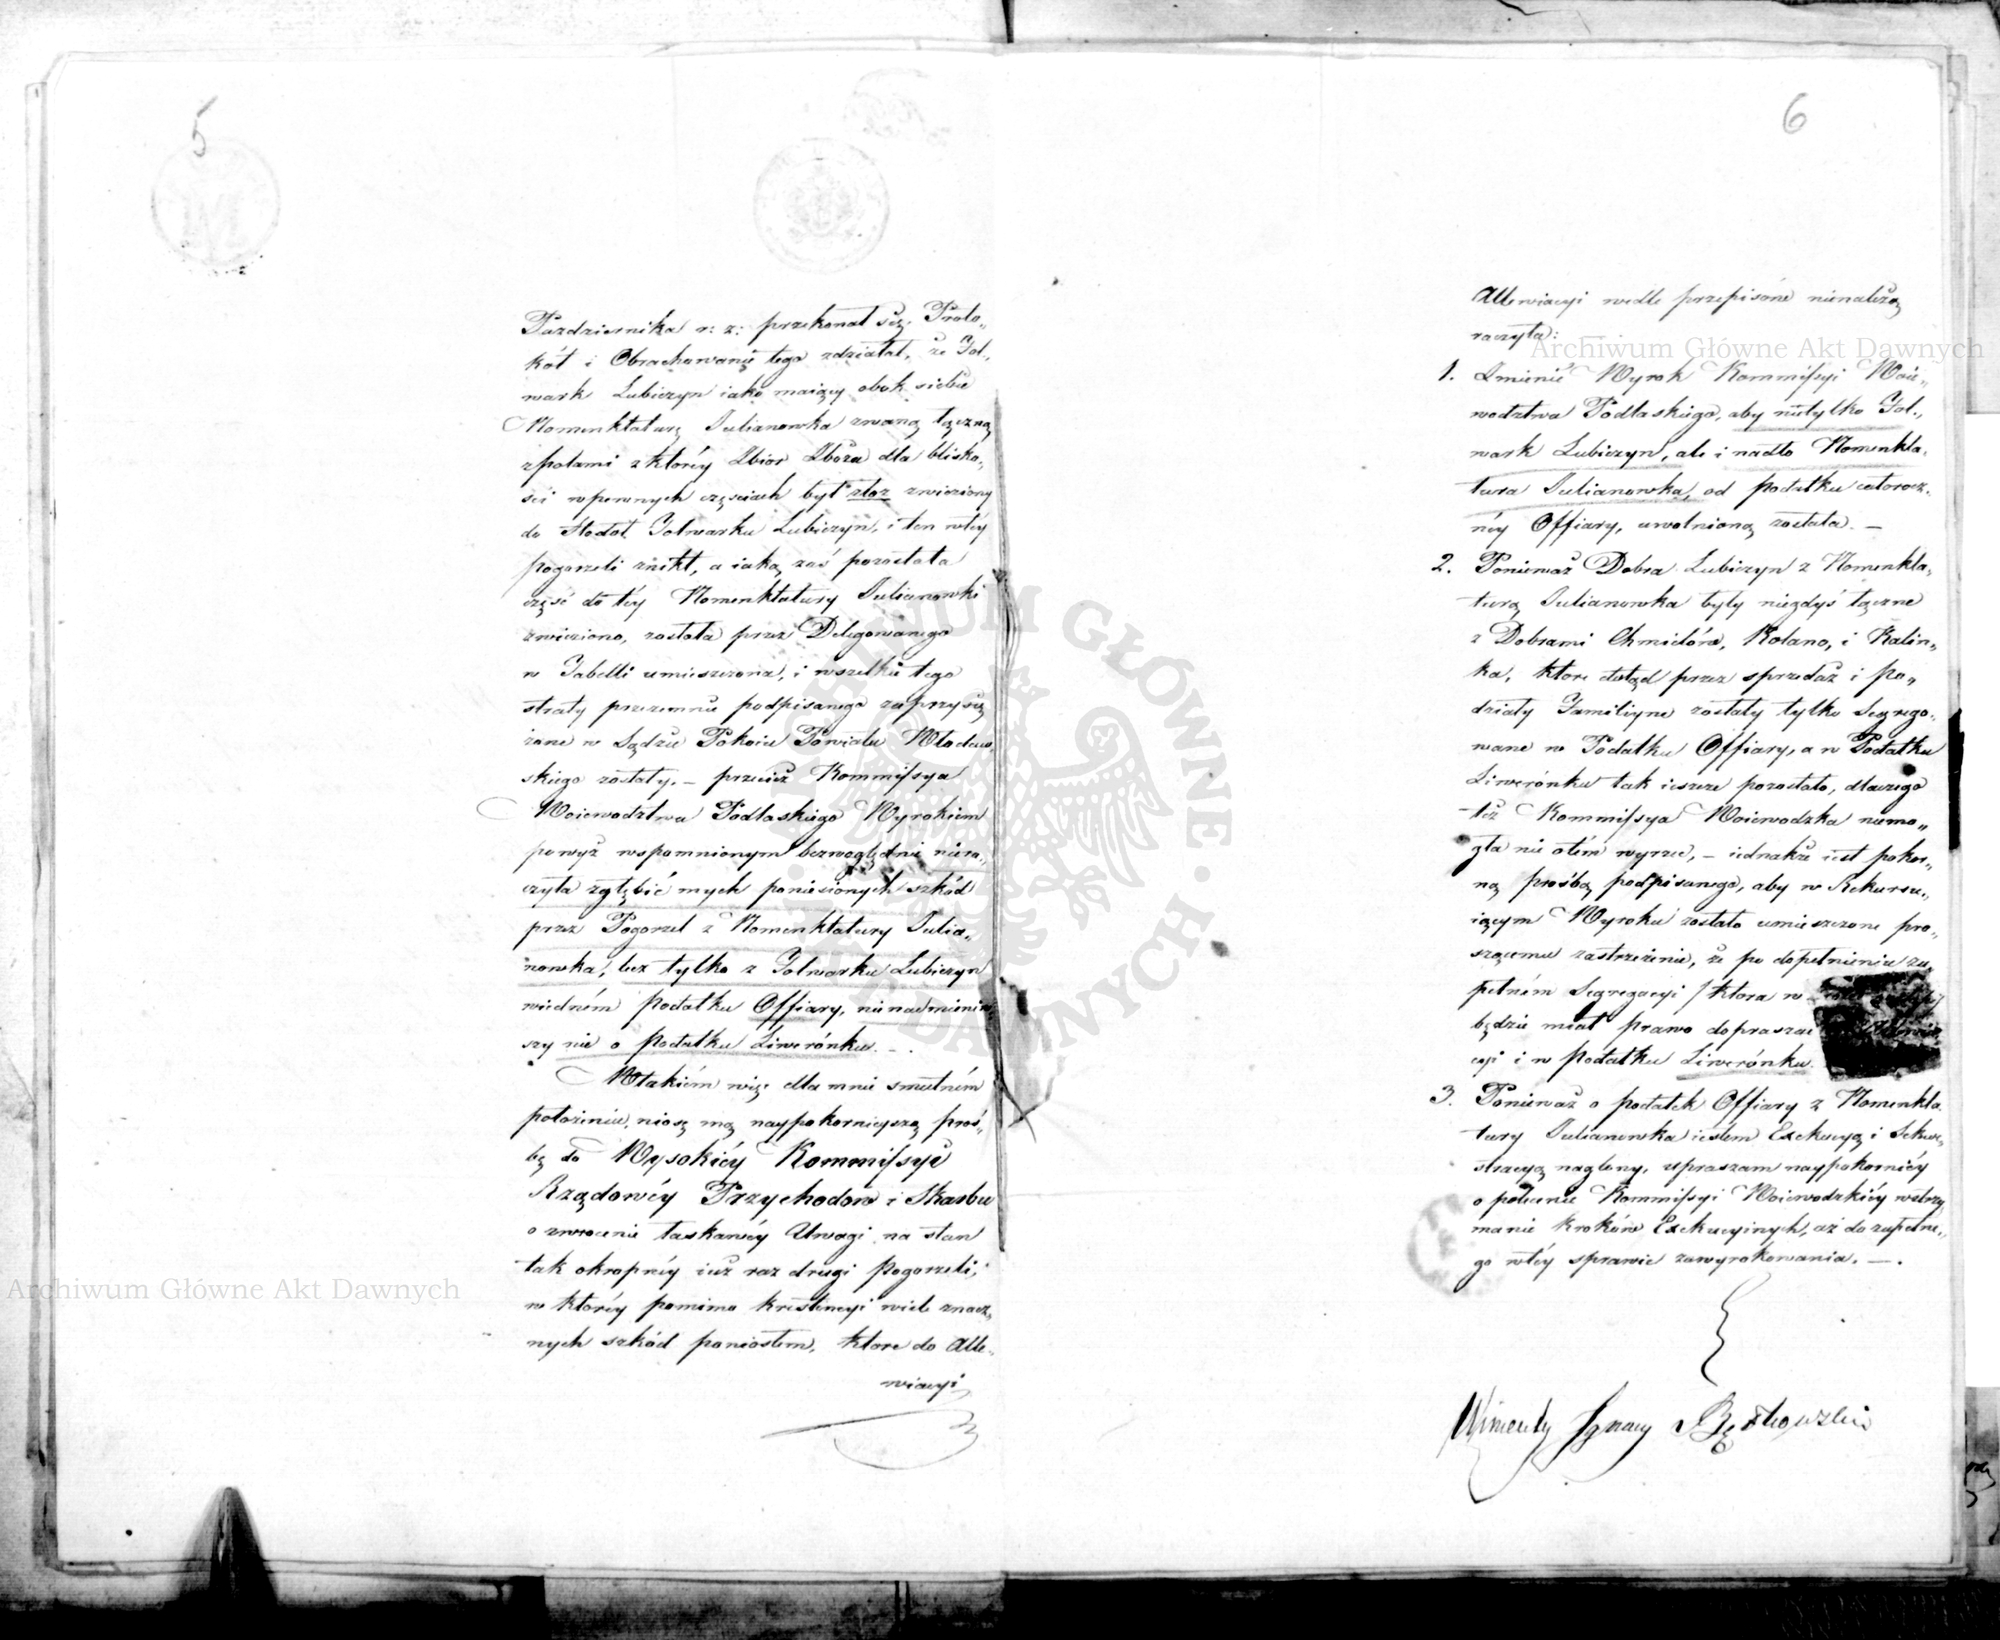 5
Pazdziernika r: z: przekonał się, Proto„
kół i Obrachowanie tego zdziałał, że Fol„
wark Lubiczyn iako maiący obok siebie
Nomenklaturę Julianowka zwaną łączną
zpolami z ktoréy Zbior Zboża dla blisko„
ści wpewnych częściach był zwieziony
do Stodoł Folwarku Lubiczyn, i ten wtéy
pogorzeli znikł, a iaka zaś pozostała
część do téy Nomenklatury Julianowki
zwieziono, została przez Delegowanego
w Tabelli umieszczona, i wszelkie tego
straty przezemnie podpisanego zaprzysię
żone w Sądzie Pokoiu Powiatu Włodaw„
skiego zostały. – przecież Kommissya
Woiewodztwa Podlaskiego Wyrokiem
powyż wspomnionym bezwzględnie niera„
czyła zgłębić mych poniesionych szkód
przez Pogorzel z Nomenklatury Julia„
nowka, lecz tylko z Folwarku Lubiczyn
wiedném podatku Offiary, nienadmieniw„
szy nic o podatku Liwerónku. –.
Wtakiém więc dla mnie smutném
położeniu, niosę mą naypokornieyszą proś„
bę do Wysokiéy Kommissyi
Rządowéy Przychodów i Skarbu
o zwrocenie łaskawéy Uwagi na stan
tak okropnéy iuż raz drugi Pogorzeli,
w ktoréy pomimo Krestencyi wiele znacz„
nych szkód poniosłem, ktore do Alle„
wiacyi
6
Allewiacyi wedle przepisów nienależą
raczyła:
Archiwum Główne Akt Dawnych
1. Zmienić Wyrok Kommissyi Woie„
wodztwa Podlaskiego, aby nietylko Fol„
wark Lubiczyn, ale i nadto Nomenkla„
tura Julianowka, od podatku całorocz„
néy Offiary, uwolnioną została. –
2. Ponieważ Dobra Lubiczyn z Nomenkla„
turą Julianowka były niegdyś łączne
z Dobrami Chmielów, Kolano, i Kalin„
ka, ktore dotąd przez sprzedaż i po„
działy Familiyne zostały tylko Segrego„
wane w Podatku Offiary, a w Podatku
Liwerónku tak ieszcze pozostało, dlaczego
też Kommissya Woiewodzka niemo„
gła nic otém wyrzec, – iednakże iest pokor„
ną prośbą podpisanego, aby w Rekursu„
iącym Wyroku zostało umieszczone pro„
szącemu zastrzeżenie, że po dopełnieniu zu„
pełném Segregacyi / ktora w
będzie miał prawo dopraszać
cyi i w podatku Liwerónku.
3. Ponieważ o podatek Offiary z Nomenkla„
tury Julianowska iestem Exekucyą i Sekwe„
stracyą naglony, upraszam naypokorniéy
o polecenie Kommissyi Woiewodzkiéy wstrzy
manie kroków Exekucyinych, aż do zupełne„
go wtéy sprawie zawyrokowania. –.
Wincenty Ignacy
Archiwum Główne Akt Dawnych
ARCHIWUM GŁÓWNE AKT DAWNYCH